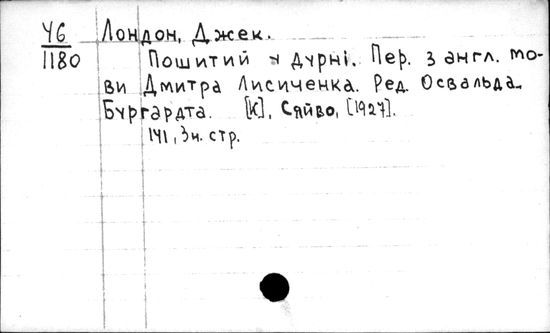 Ч6 Лондон, Джек.
1180 Пошитий у дурні. Пер. з англ. мо-
ви Дмитра Лисиченка. Ред. Освальда
Бургардта. [К], Сяйво, [1927].
141, 3 н. стр.